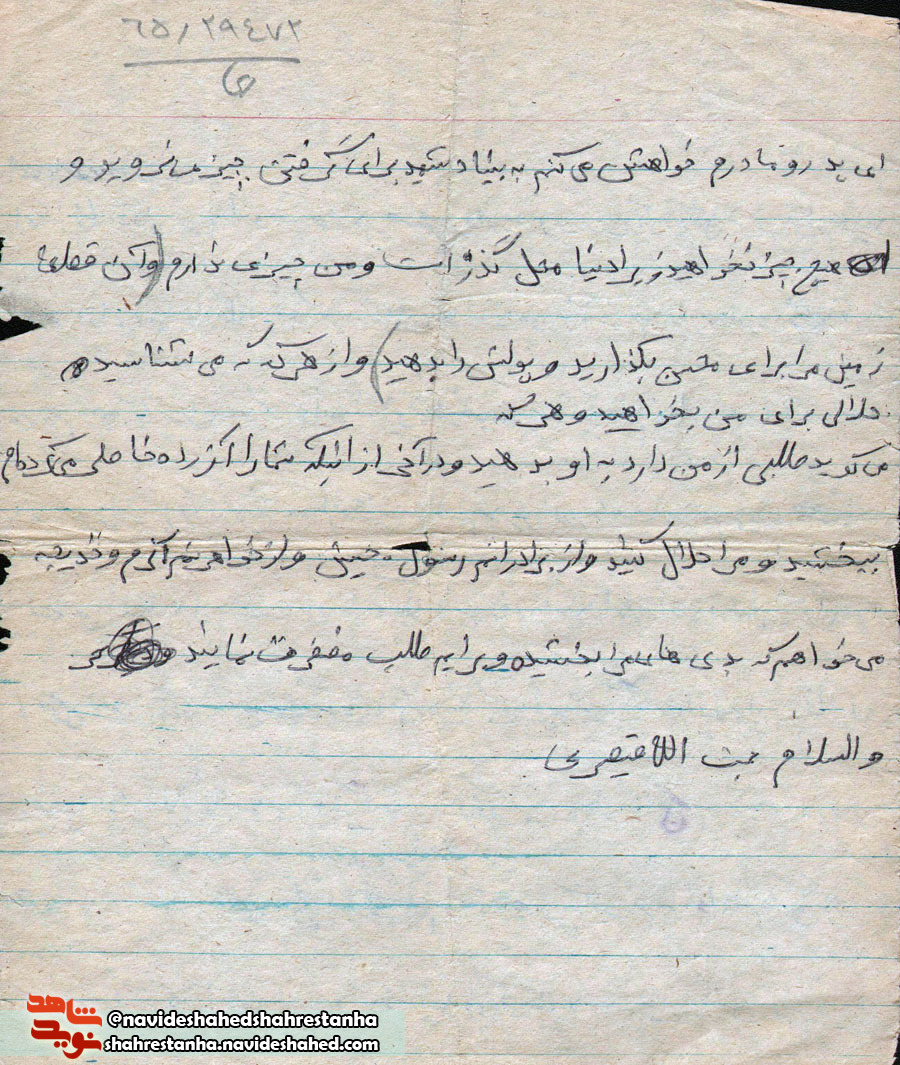 ٦٥/٢٩٤٧٢
ای پدر و مادرم خواهش می کنم به بنیاد شهید برای گرفتن چیزی نروید و
هیچ چیز نخواهید زیرا دنیا محل گذر است و من چیزی ندارم (و آن قطعه
زمین مرا برای محسن بگذارید و پولش را بدهید) و از هر که که می شناسید
حلالی برای من بخواهید و هر که
می گوید طلبی از من دارد به او بدهید و در آخر از اینکه شما را آزرده خاطر کرده ام
ببخشید و مرا حلال کنید و از برادرانم رسول و خواهرم و خدیجه
می خواهم که بدی های مرا بخشیده و برایم طلب مغفرت نمایند
والسلام محبت الله قیصری
شاهد
نوید
@navideshahedshahrestanha
shahrestanha.navideshahed.com